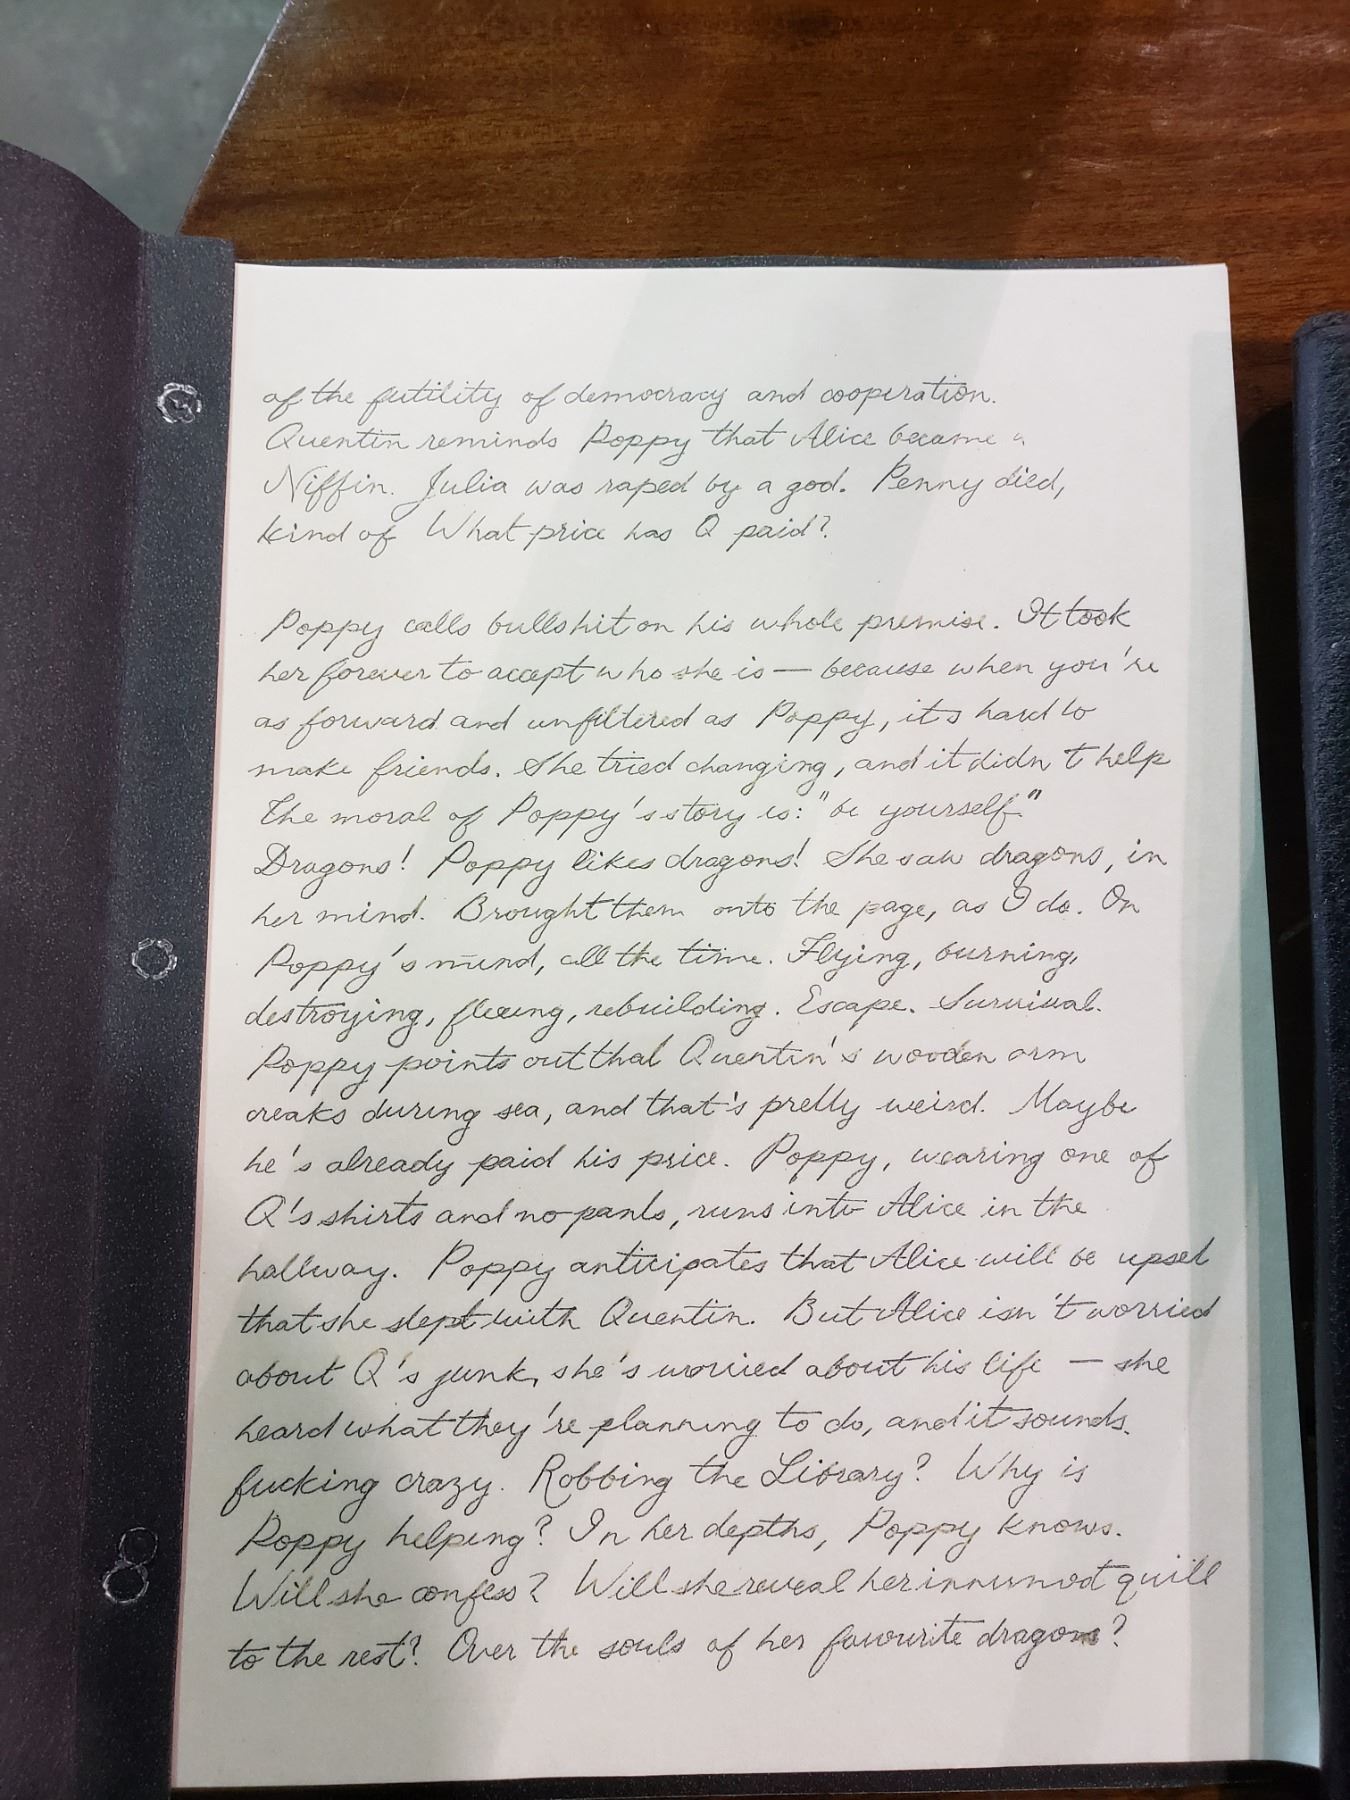 of the futility of democracy and cooperation.
Quentin reminds Poppy that Alice became a
Niffin. Julia was raped by a god. Penny died,
kind of What price has Q paid?
Poppy calls bullshit on his whole premise. It took
her forever to accept who she is — because when you're
as forward and unfiltered as Poppy, it's hard to
make friends. She tried changing, and it didn't help
The moral of Poppy's story is: "be yourself"
Dragons! Poppy likes dragons! She saw dragons, in
her mind. Brought them onto the page, as I do. On
Poppy's mind, all the time. Flying, burning,
destroying, fleeing, rebuilding. Escape. Survival.
Poppy points out that Quentin's wooden arm
creaks during sex, and that's pretty weird. Maybe
he's already paid his price. Poppy, wearing one of
Q's shirts and no pants, runs into Alice in the
hallway. Poppy anticipates that Alice will be upset
that she slept with Quentin. But Alice isn't worried
about Q's junk, she's worried about his life — she
heard what they're planning to do, and it sounds
fucking crazy. Robbing the Library? Why is
Poppy helping? In her depths, Poppy knows.
Will she confess? Will she reveal her innermost quill
to the rest? Over the souls of her favourite dragons?